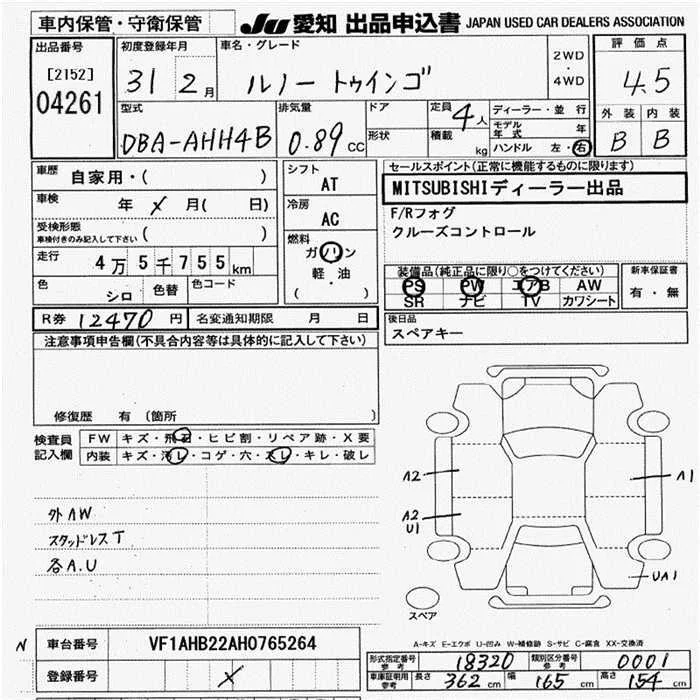 車内保管・守衛保管
JU 愛知 出品申込書 JAPAN USED CAR DEALERS ASSOCIATION
出品番号
[2152]
04261
初度登録年月
31 2月
車名・グレード
ルノー トゥインゴ
2WD
・
4WD
評価点
4.5
外装 内装
B B
型式
DBA-AHH4B
排気量
0.89 CC
ドア
形状
定員 4人
積載 kg
ディーラー・並行
モデル年式 年
ハンドル 左・右
車歴 自家用・( )
車検 年 × 月( 日)
受検形態
車検付きのみ記入して下さい ( )
走行 4万5千755km
色 シロ 色替 色コード
シフト
AT
冷房
AC
燃料
ガソリン
軽・油
( )
セールスポイント(正常に機能するものに限ります)
MITSUBISHIディーラー出品
F/Rフォグ
クルーズコントロール
装備品(純正品に限り○をつけてください)
PS PW エアB AW
SR ナビ TV カワシート
新車保証書
有・無
R券 12470円 名変通知期限 月 日
後日品
スペアキー
注意事項申告欄(不具合内容等は具体的に記入して下さい)
修復歴 有 (箇所 )
検査員記入欄
FW キズ・飛石・ヒビ割・リペア跡・X要
内装 キズ・汚レ・コゲ・穴・スレ・キレ・破レ
外AW
スタッドレスT
各A.U
A2
A2
U1
A1
UA1
スペア
N
車台番号 VF1AHB22AH0765264
登録番号 ×
A-キズ E-エクボ U-凹み W-補修跡 S-サビ C-腐食 XX-交換済
形式指定番号参考 18320 類別区分番号参考 0001
車庫証明用参考 長さ 362cm 幅 165cm 高さ 154cm